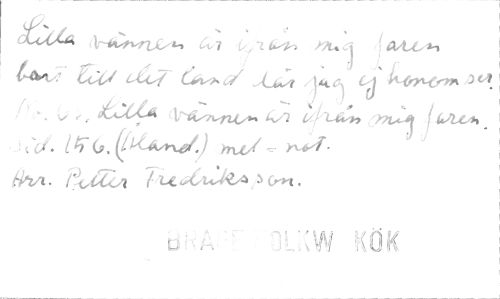 Lilla vännen är ifrån mig faren
bort till det land där jag ej honom ser.
No. 61. Lilla vännen är ifrån mig faren.
sid. 156. (Åland.) mel = not.
Arr. Petter Fredriksson.
BRAGE FOLKW KÖK